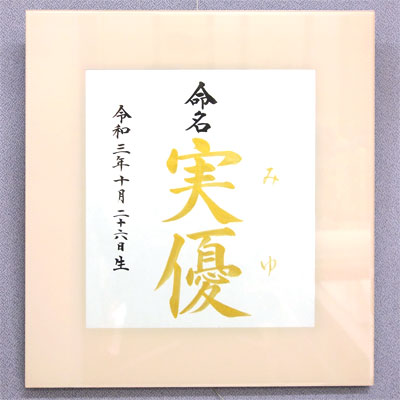 命名
実優
みゆ
令和三年十月二十六日生